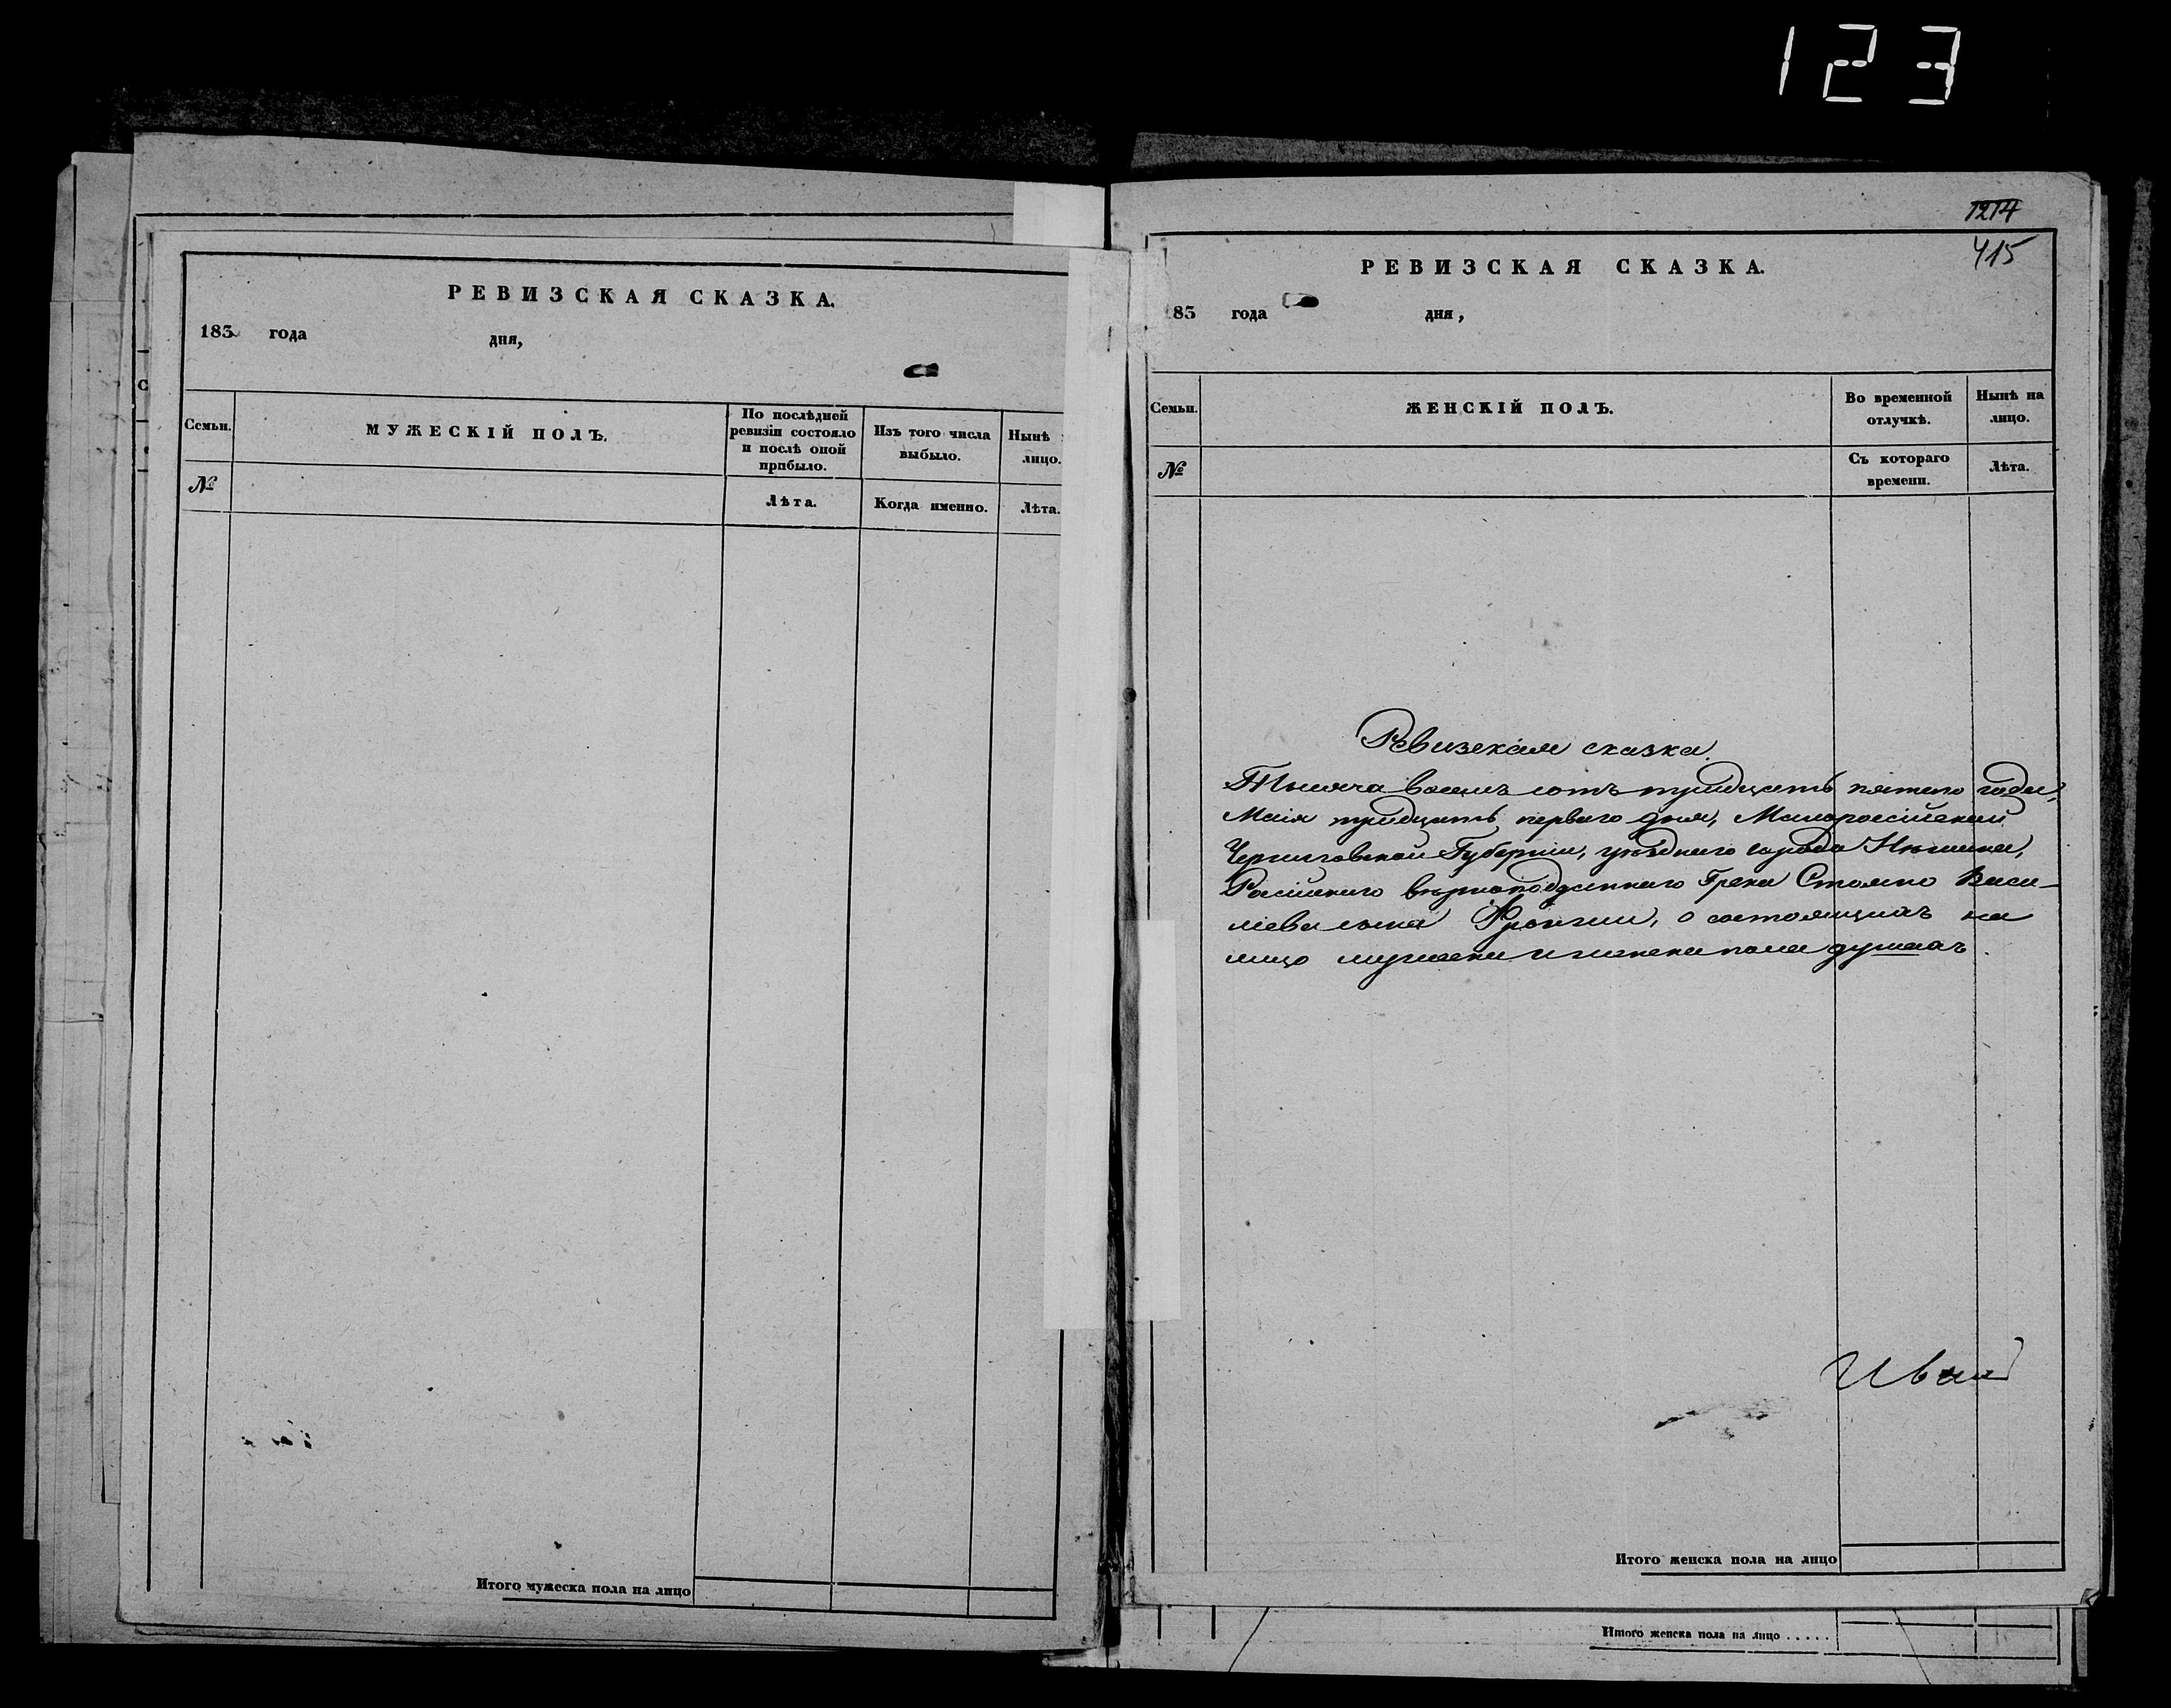 123
РЕВИЗСКАЯ СКАЗКА.
183 года дня,
Семьи.
МУЖЕСКІЙ ПОЛЪ.
По послѣдней
ревизіи состояло
и послѣ оной
прибыло.
Изъ того числа
выбыло.
Нынѣ
лицо.
№
Лѣта.
Когда именно.
Лѣта.
Итого мужеска пола на лицо
1214
415
РЕВИЗСКАЯ СКАЗКА.
183 года дня,
Семьи.
ЖЕНСКІЙ ПОЛЪ.
Во временной
отлучкѣ.
Нынѣ на
лицо.
№
Съ котораго
времени.
Лѣта.
Ревизская сказка.
Тысяча восемь сотъ тридцать пятаго года,
Маія тридцать перваго дня, Малороссійской
Черниговской Губерніи, уѣзднаго города Нѣжина,
Расійскаго вѣрноподданнаго Грека Стояно Васи-
лieва сына о состоящихъ на
лицо мужеска и женска пола душахъ.
Иван
Итого женска пола на лицо
Итого женска пола на лицо . . . . .